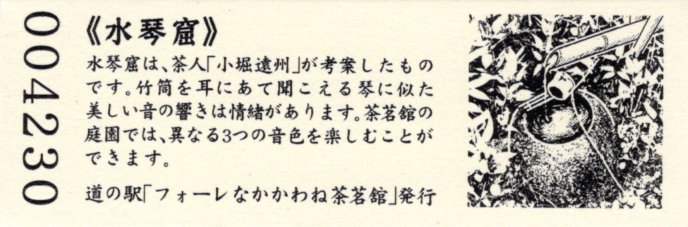 004230
《水琴窟》
水琴窟は、茶人「小堀遠州」が考案したもの
です。竹筒を耳にあて聞こえる琴に似た
美しい音の響きは情緒があります。茶茗館の
庭園では、異なる3つの音色を楽しむことが
できます。
道の駅「フォーレなかかわね茶茗館」発行